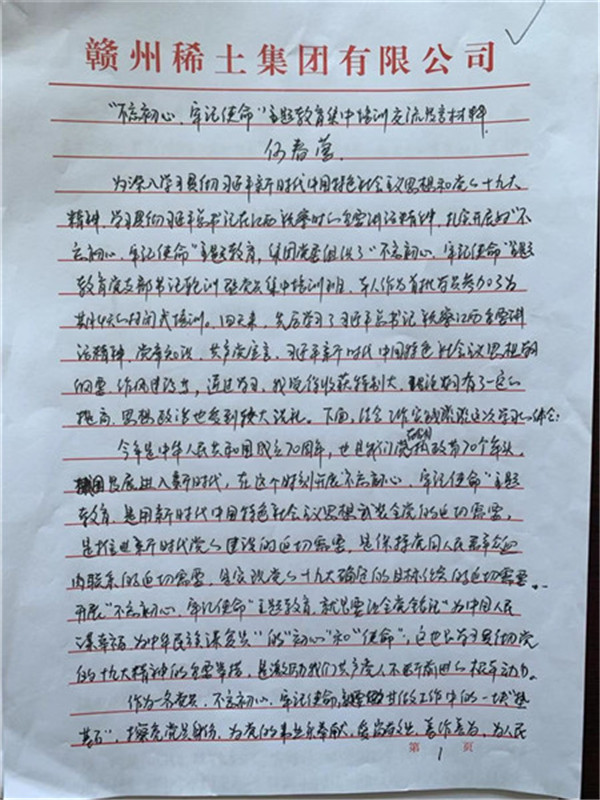 赣州稀土集团有限公司
“不忘初心、牢记使命”主题教育集中培训交流发言材料
何春莹
为深入学习贯彻习近平新时代中国特色社会主义思想和党的十九大
精神，学习贯彻习近平总书记在江西视察时的重要讲话精神，扎实开展好“不
忘初心、牢记使命”主题教育，集团党委组织了“不忘初心、牢记使命”主题
教育党支部书记轮训暨党员集中培训班，本人作为首批党员参加了为
期4天的封闭式培训。四天来，先后学习了习近平总书记视察江西重要讲
话精神、党章知识、共产党宣言、习近平新时代中国特色社会主义思想
纲要、作风建设等，通过学习，我觉得收获特别大，理论有了一定的
提高，思想政治也受到较大洗礼。下面，结合工作实践谈谈这次学习的体会：
今年是中华人民共和国成立70周年，也是我们党执政第70个年头，
我国发展进入新时代，在这个时刻开展“不忘初心、牢记使命”主题
教育，是用新时代中国特色社会主义思想武装全党的迫切需要，
是推进新时代党的建设的迫切需要，是保持党同人民群众血
肉联系的迫切需要，是实现党的十九大确定的目标任务的迫切需要。
开展“不忘初心、牢记使命”主题教育，就是要让全党牢记“为中国人民
谋幸福、为中华民族谋复兴”的“初心”和“使命”；这也是学习贯彻党
的十九大精神的重要举措，是激励我们共产党人不断前进的根本动力。
作为一名党员，不忘初心、牢记使命，甘做工作中的一块“基
石”，擦亮党员身份，为党的事业乐奉献，善作善为，为人民
第 1 页